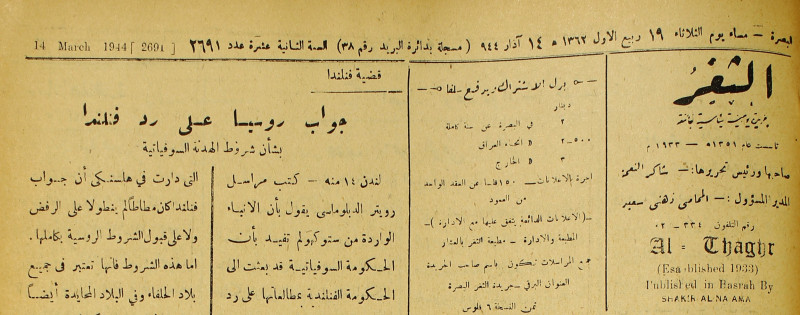 لبصرة - مساء يوم الثلاثاء ١٩ ربيع الاول ١٣٦٣ ه ١٤ آذار ٩٤٤ ( مسجلة بدائرة البريد رقم ٣٨) السنة الثانية عشرة عدد ٢٦٩١
14 March 1944 [ 2691 ]
الثغر
جريدة يومية سياسية جامعة
تأسست عام ١٣٥١ ه - ١٩٣٣ م
صاحبها ورئيس تحريرها: - شاكر النعمة
المدير المسؤول: - المحامي زهني سعيد
رقم التلفون ٣٣٤ - ٠٢
Al - Thaghr
(Esablished 1933)
Published in Basrah By
SHAKIR AL NAAMA
بدل الاشتراك ويدفع سلفا
دينار
٢ في البصرة عن سنة كاملة
٢-٥٠٠ » انحاء العراق
٣ » الخارج
اجرة الاعلانات ١٥٠ فلسا عن العقد الواحد
من العمود
-( الاعلانات الدائمة يتفق عليها مع الادارة )-
المطبعة والادارة - مطبعة الثغر بالعشار
جميع المراسلات تكون باسم صاحب الجريدة
العنوان البرقي - جريدة الثغر البصرة
ثمن النسخة ٦ فلوس
قضية فنلندا
جواب روسيا على رد فنلندا
بشأن شروط الهدنة السوفياتية
لندن ١٤ منه - كتب مراسل
رويتر الدبلوماسي يقول بأن الانباء
الواردة من ستوكهولم تفيد بأن
الحكومة السوفياتية قد بعثت الى
الحكومة الفنلندية بمطالعاتها على رد
التى دارت في هلسنكي أن جواب
فنلندا كان مطاطا لم ينطو لا على الرفض
ولا على قبول الشروط الروسية بكاملها.
اما هذه الشروط فانها تعتبر في جميع
بلاد الحلفاء وفي البلاد المحايدة أيضا